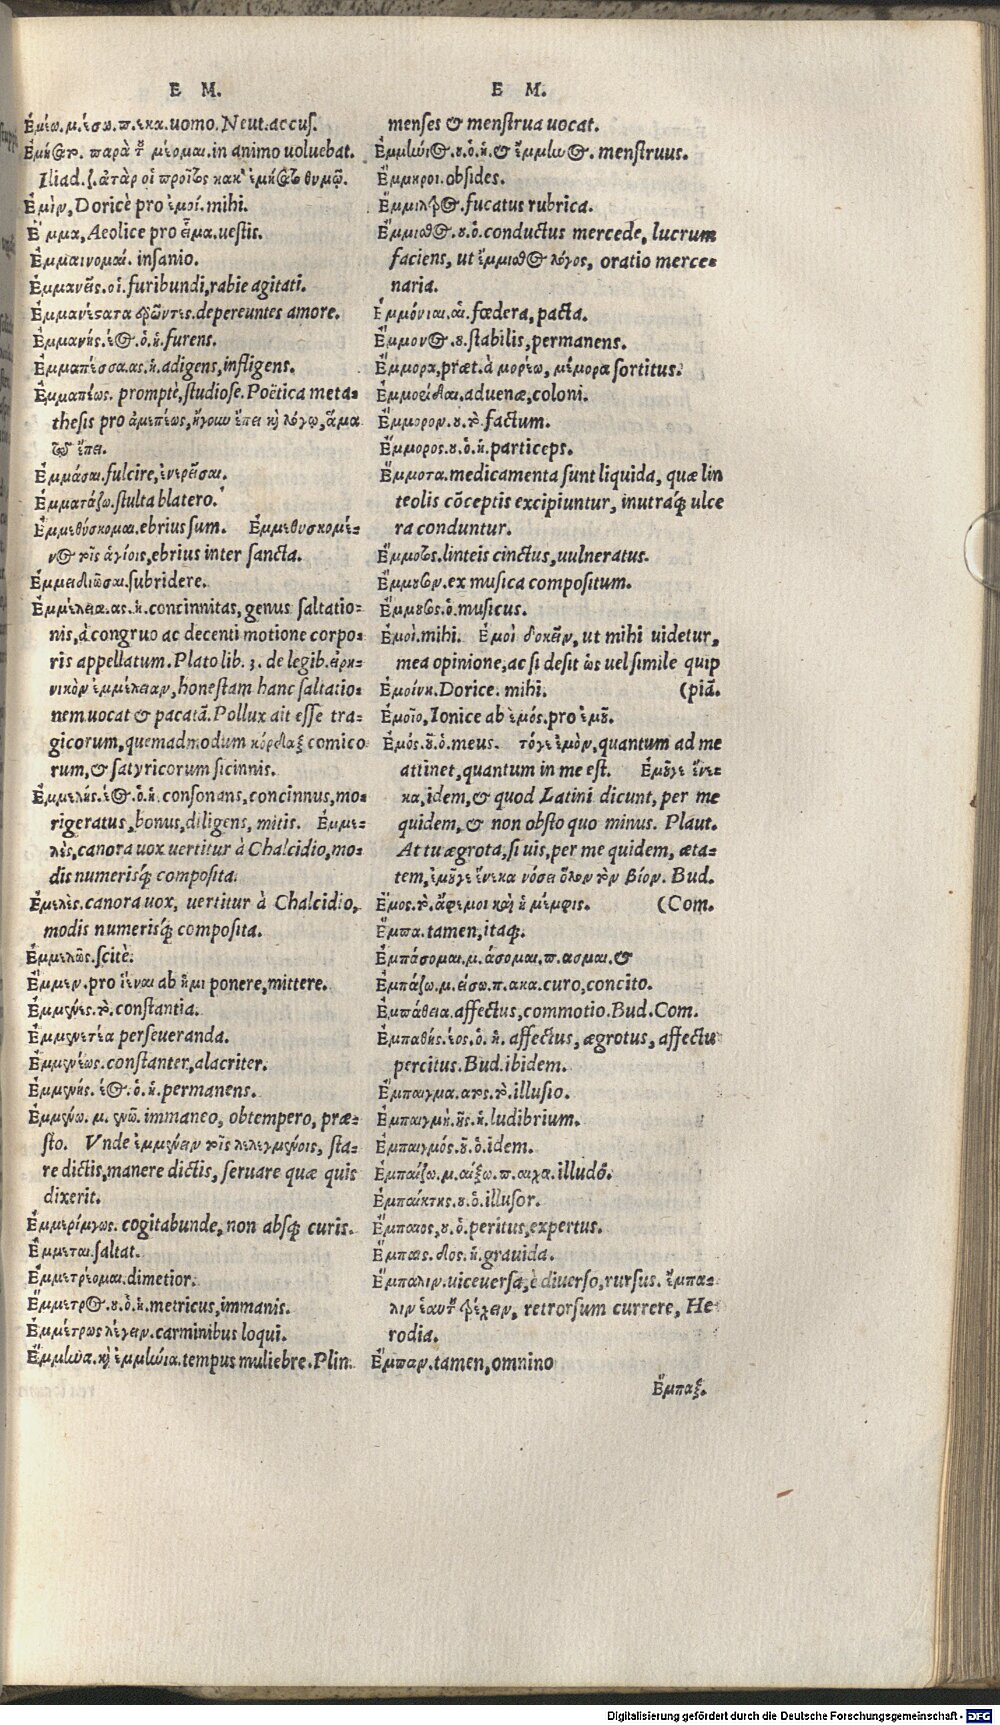 E M.
Ἐμέω.μ.έσω.π.εκα.uomo.Neut.accuſ.
παρὰ μέομαι.in animo uoluebat.
Iliad.ζ.ἀτὰρ οἱ προῖτος κακ' ἐμήσατο θυμῷ.
Ἐμὶν,Doricè pro ἐμοί.mihi.
Ἔμμα,Aeolice pro εἷμα.ueſtis.
Ἐμμαινομαί. inſanio.
Ἐμμανεῖς.οἱ.furibundi,rabie agitati.
Ἐμμανέςατα ἐρῶντες.depereuntes amore.
Ἐμμανής.έος.ὁ.ἡ.furens.
Ἐμμαπέεσσα.ας.ἡ.adigens,infligens.
Ἐμμαπέως. promptè,ſtudioſe.Poëtica meta-
theſis pro ἀμεπέως,ἤγουν ἔπει καὶ λόγῳ,ἅμα
τῷ ἔπει.
Ἐμμάσαι.fulcire,ἐνερεῖσαι.
Ἐμματάζω.ſtulta blatero.
Ἐμμεθύσκομαι.ebrius ſum. Ἐμμεθυσκομέ-
νος τοῖς ἁγίοις,ebrius inter ſancta.
Ἐμμειδιῶσαι.ſubridere.
Ἐμμέλεια.ας.ἡ.concinnitas,genus ſaltatio-
nis,à congruo ac decenti motione corpo-
ris appellatum.Plato lib. 3. de legib.εἰρη-
νικὸν ἐμμέλειαν,honeſtam hanc ſaltatio-
nem uocat & pacatã.Pollux ait eſſe tra-
gicorum,quemadmodum κόρδαξ comico
rum,& ſatyricorum ſicinnis.
Ἐμμελής.έος.ὁ.ἡ. conſonans,concinnus,mo-
rigeratus,bonus,diligens, mitis. Ἐμμε-
λὲς,canora uox uertitur à Chalcidio,mo-
dis numerisq; compoſita.
Ἐμμελὲς.canora uox, uertitur à Chalcidio,
modis numerisq; compoſita.
Ἐμμελῶς.ſcitè.
Ἔμμεν.pro ἱέναι ab ἧμι ponere,mittere.
Ἐμμενές.τὸ.conſtantia.
Ἐμμενετέα perſeueranda.
Ἐμμενέως.conſtanter,alacriter.
Ἐμμενής. έος.ὁ.ἡ.permanens.
Ἐμμένω. μ. ενῶ. immaneo, obtempero, præ-
ſto. Vnde ἐμμένειν τοῖς λελεγμένοις, ſta-
re dictis,manere dictis, ſeruare quæ quis
dixerit.
Ἐμμερίμνως. cogitabunde, non absq; curis.
Ἔμμεται.ſaltat.
Ἐμμετρέομαι.dimetior.
Ἔμμετρος.ου.ὁ.ἡ.metricus,immanis.
Ἐμμέτρως λέγειν.carminibus loqui.
Ἔμμηνα.καὶ ἐμμήνια.tempus muliebre.Plin.
E M.
menſes & menſtrua uocat.
Ἐμμήνιος.ου.ὁ.ἡ.& ἔμμηνος. menſtruus.
Ἔμμηροι.obſides.
Ἔμμιλτος.fucatus rubrica.
Ἔμμισθος.ου.ὁ.conductus mercede, lucrum
faciens, ut ἔμμισθος λόγος, oratio merce-
naria.
Ἐμμόνιαι.αἱ. fœdera, pacta.
Ἔμμονος.ου.ſtabilis,permanens.
Ἔμμορα,præt.à μορέω, μέμορα ſortitus.
aduenæ,coloni.
Ἔμμορον.ου.τὸ.factum.
Ἔμμορος.ου.ὁ.ἡ.particeps.
Ἔμμοτα.medicamenta ſunt liquida, quæ lin
teolis cõceptis excipiuntur, inutráq; ulce
ra conduntur.
Ἔμμοτος.linteis cinctus,uulneratus.
Ἔμμουσον.ex muſica compoſitum.
Ἔμμουσος.ὁ.muſicus.
Ἐμοὶ.mihi. Ἐμοὶ δοκεῖν, ut mihi uidetur,
mea opinione,ac ſi deſit ὡς uel ſimile quip
Ἐμοίνη.Dorice. mihi. (piã.
Ἐμοῖο,Ionice ab ἐμός.pro ἐμοῦ.
Ἐμός.οῦ.ὁ.meus. τόγε ἐμὸν,quantum ad me
attinet,quantum in me eſt. Ἐμοῦγε ἕνε-
κα,idem,& quod Latini dicunt, per me
quidem, & non obſto quo minus. Plaut.
At tu ægrota,ſi uis,per me quidem, æta-
tem,ἐμοῦγε ἕνεκα νόσει ὅλον τὸν βίον. Bud.
Ἔμος.τὸ.ἄφεμοι καὶ ἡ μέμφις. (Com.
Ἔμπα.tamen,itaq;.
Ἐμπάσομαι.μ.άσομαι.π.ασμαι.&
Ἐμπάζω.μ.είσω.π.ακα.curo,concito.
Ἐμπάθεια.affectus,commotio.Bud.Com.
Ἐμπαθής.έος.ὁ. ἡ. affectus, ægrotus, affectu
percitus.Bud.ibidem.
Ἔμπαιγμα.ατος.τὸ.illuſio.
Ἐμπαιγμὴ.ῆς.ἡ.ludibrium.
Ἐμπαιγμός.οῦ.ὁ.idem.
Ἐμπαίζω.μ.αίξω.π.αιχα.illudo.
Ἐμπαίκτης.ου.ὁ.illuſor.
Ἔμπαιος,ου.ὁ.peritus,expertus.
Ἔμπαις.δος.ἡ.grauida.
Ἔμπαλιν.uiceuerſa,è diuerſo,rurſus. ἔμπα-
λιν ἑαυτοῦ τρέχειν, retrorſum currere, He
rodia.
Ἔμπαν.tamen,omnino
Ἔμπαξ.
Digitalisierung gefördert durch die Deutsche Forschungsgemeinschaft - DFG